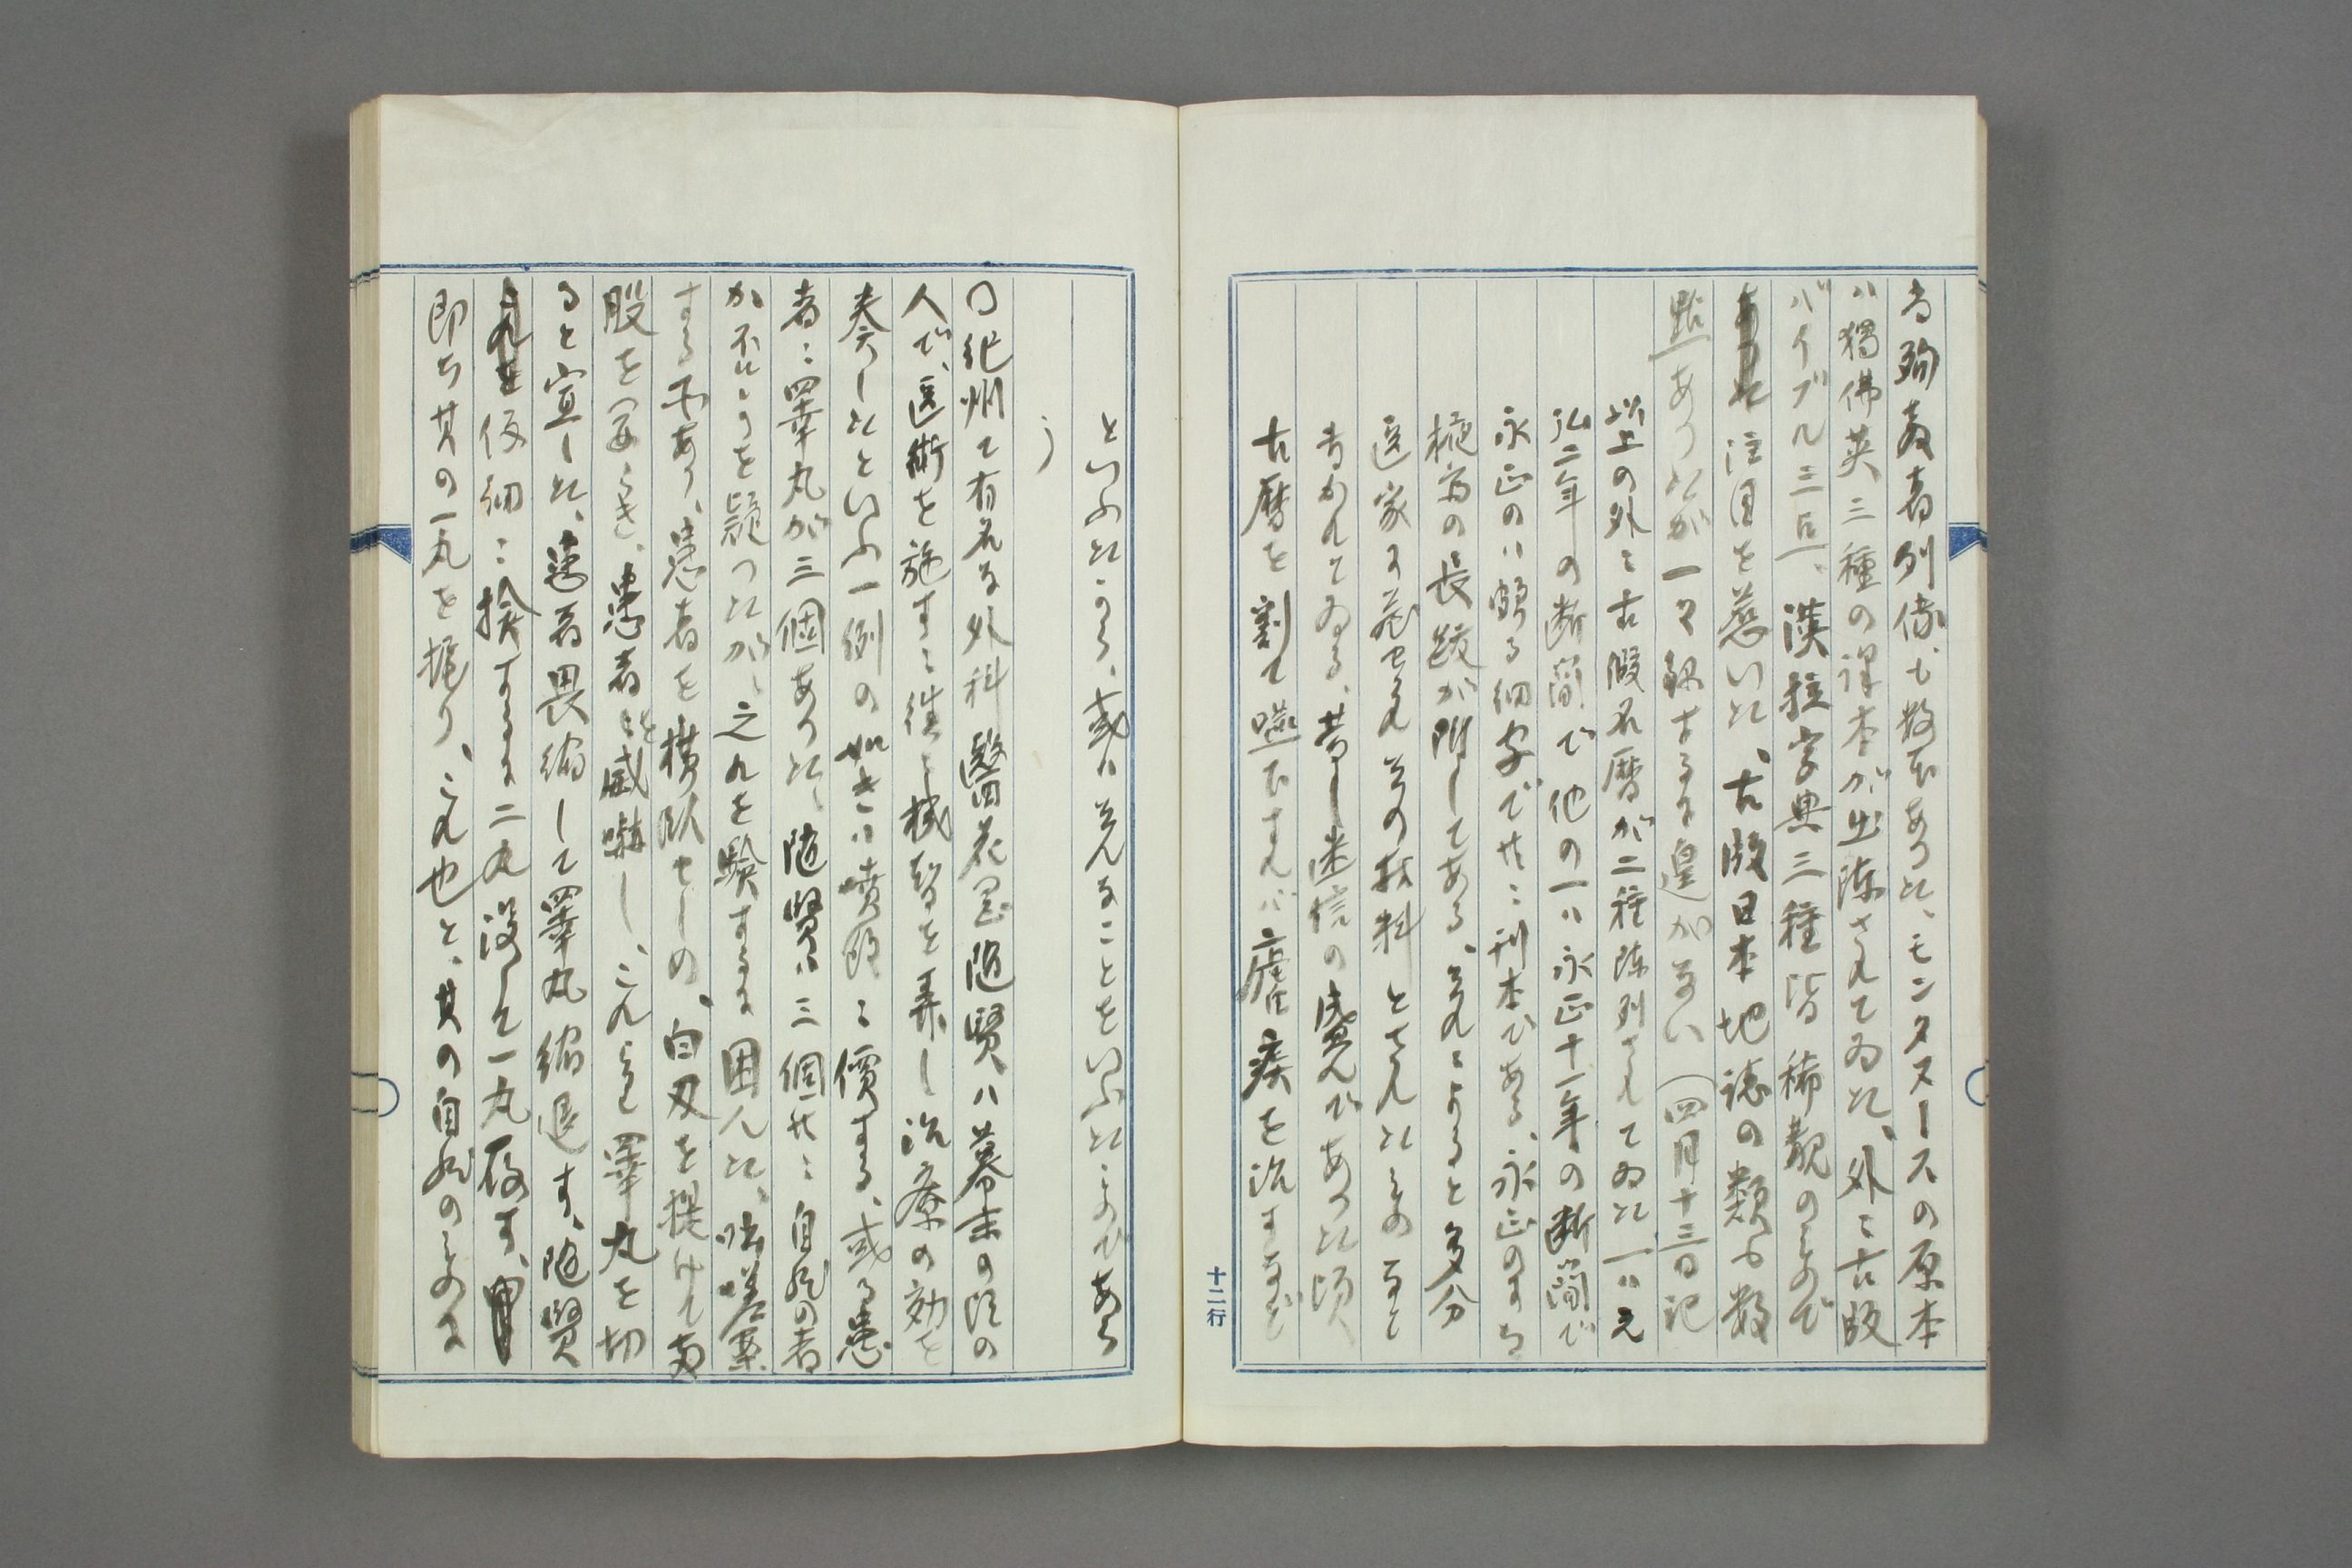 る殉教者列伝も数本あつた、モンタヌースの原本
ハ獨佛英三種の譯本が出陳されてゐた、外ニ古版
バイブル三点、漢拉字典三種皆稀覯のもので
注目を惹いた、古版日本地誌の類も数
點あつたが一々録するに遑がない（四月十三日記
以上の外ニ古假名暦が二種陳列されてゐた一ハ元
弘二年の断簡で他の一ハ永正十一年の断簡で
永正のハ頗る細字で共ニ刊本である、永正のすら
椀斎の長跋が附してある、それによると多分
医家に蔵せられ其の材料とされたものなと
書かれてゐる、昔し迷信の盛んであつた頃
古暦を割て嚥下すれバ瘧疾を治すなど
といふたから、或ハそんなことをいふたのであら
う
〇紀州て有名な外科醫花岡随賢ハ幕末の頃の
人で、医術を施すに往々機智を弄し治療の効を
奏したといふ一例の如きハ噴飯に價する、或る患
者ニ睾丸が三個あつた、随賢ハ三個共ニ自然の者
か不かを疑つたが、之れを験するに困んた、咄嗟案
する所あり、患者を横臥せしめ、白刃を提げて両
股を開らき、患者を威嚇し、これより睾丸を切
ると宣した、患者畏縮して睾丸縮退す、随賢
仔細ニ検するに二丸没して一丸存す、
即ち其の一丸を握り、これ也と、其の自然のものに
十二行